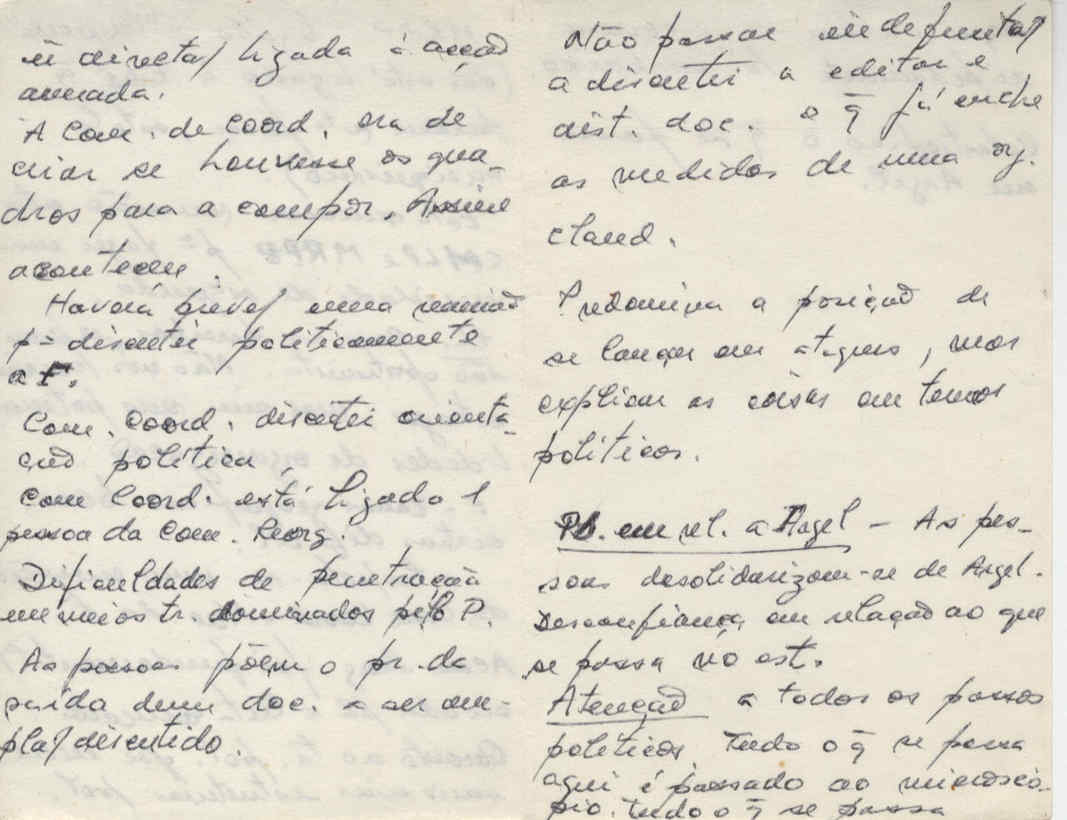 ñ directa/ ligada à acção
armada.
A Com. de Coord. era de
criar se houvesse os qua-
dros para a compôr. Assim
aconteceu.
Haverá breve/ uma reunião
p= discutir politicamente
a F.
Com. Coord. discutir orienta-
ção política.
Com Coord. está ligado 1
pessoa da Com. Reorg.
Dificuldades de penetração
em meios tr. dominados pelo P.
As pessoas põem o pr. da
saída dum doc. a ser am-
pla/ discutido.
Não passar indefinita/
a discutir a editar e
dist. doc. o q̄ já enche
as medidas de uma org.
cland.
Predomina a posição de
se lançar em ataques, mas
explicar as coisas em termos
políticos.
Pb. em rel. a Argel – As pes-
soas desolidarizam-se de Argel.
Desconfiança em relação ao que
se passa no ext.
Atenção a todos os passos
políticos. Tudo o q̄ se passa
aqui é passado ao microscó-
pio. Tudo o q̄ se passa